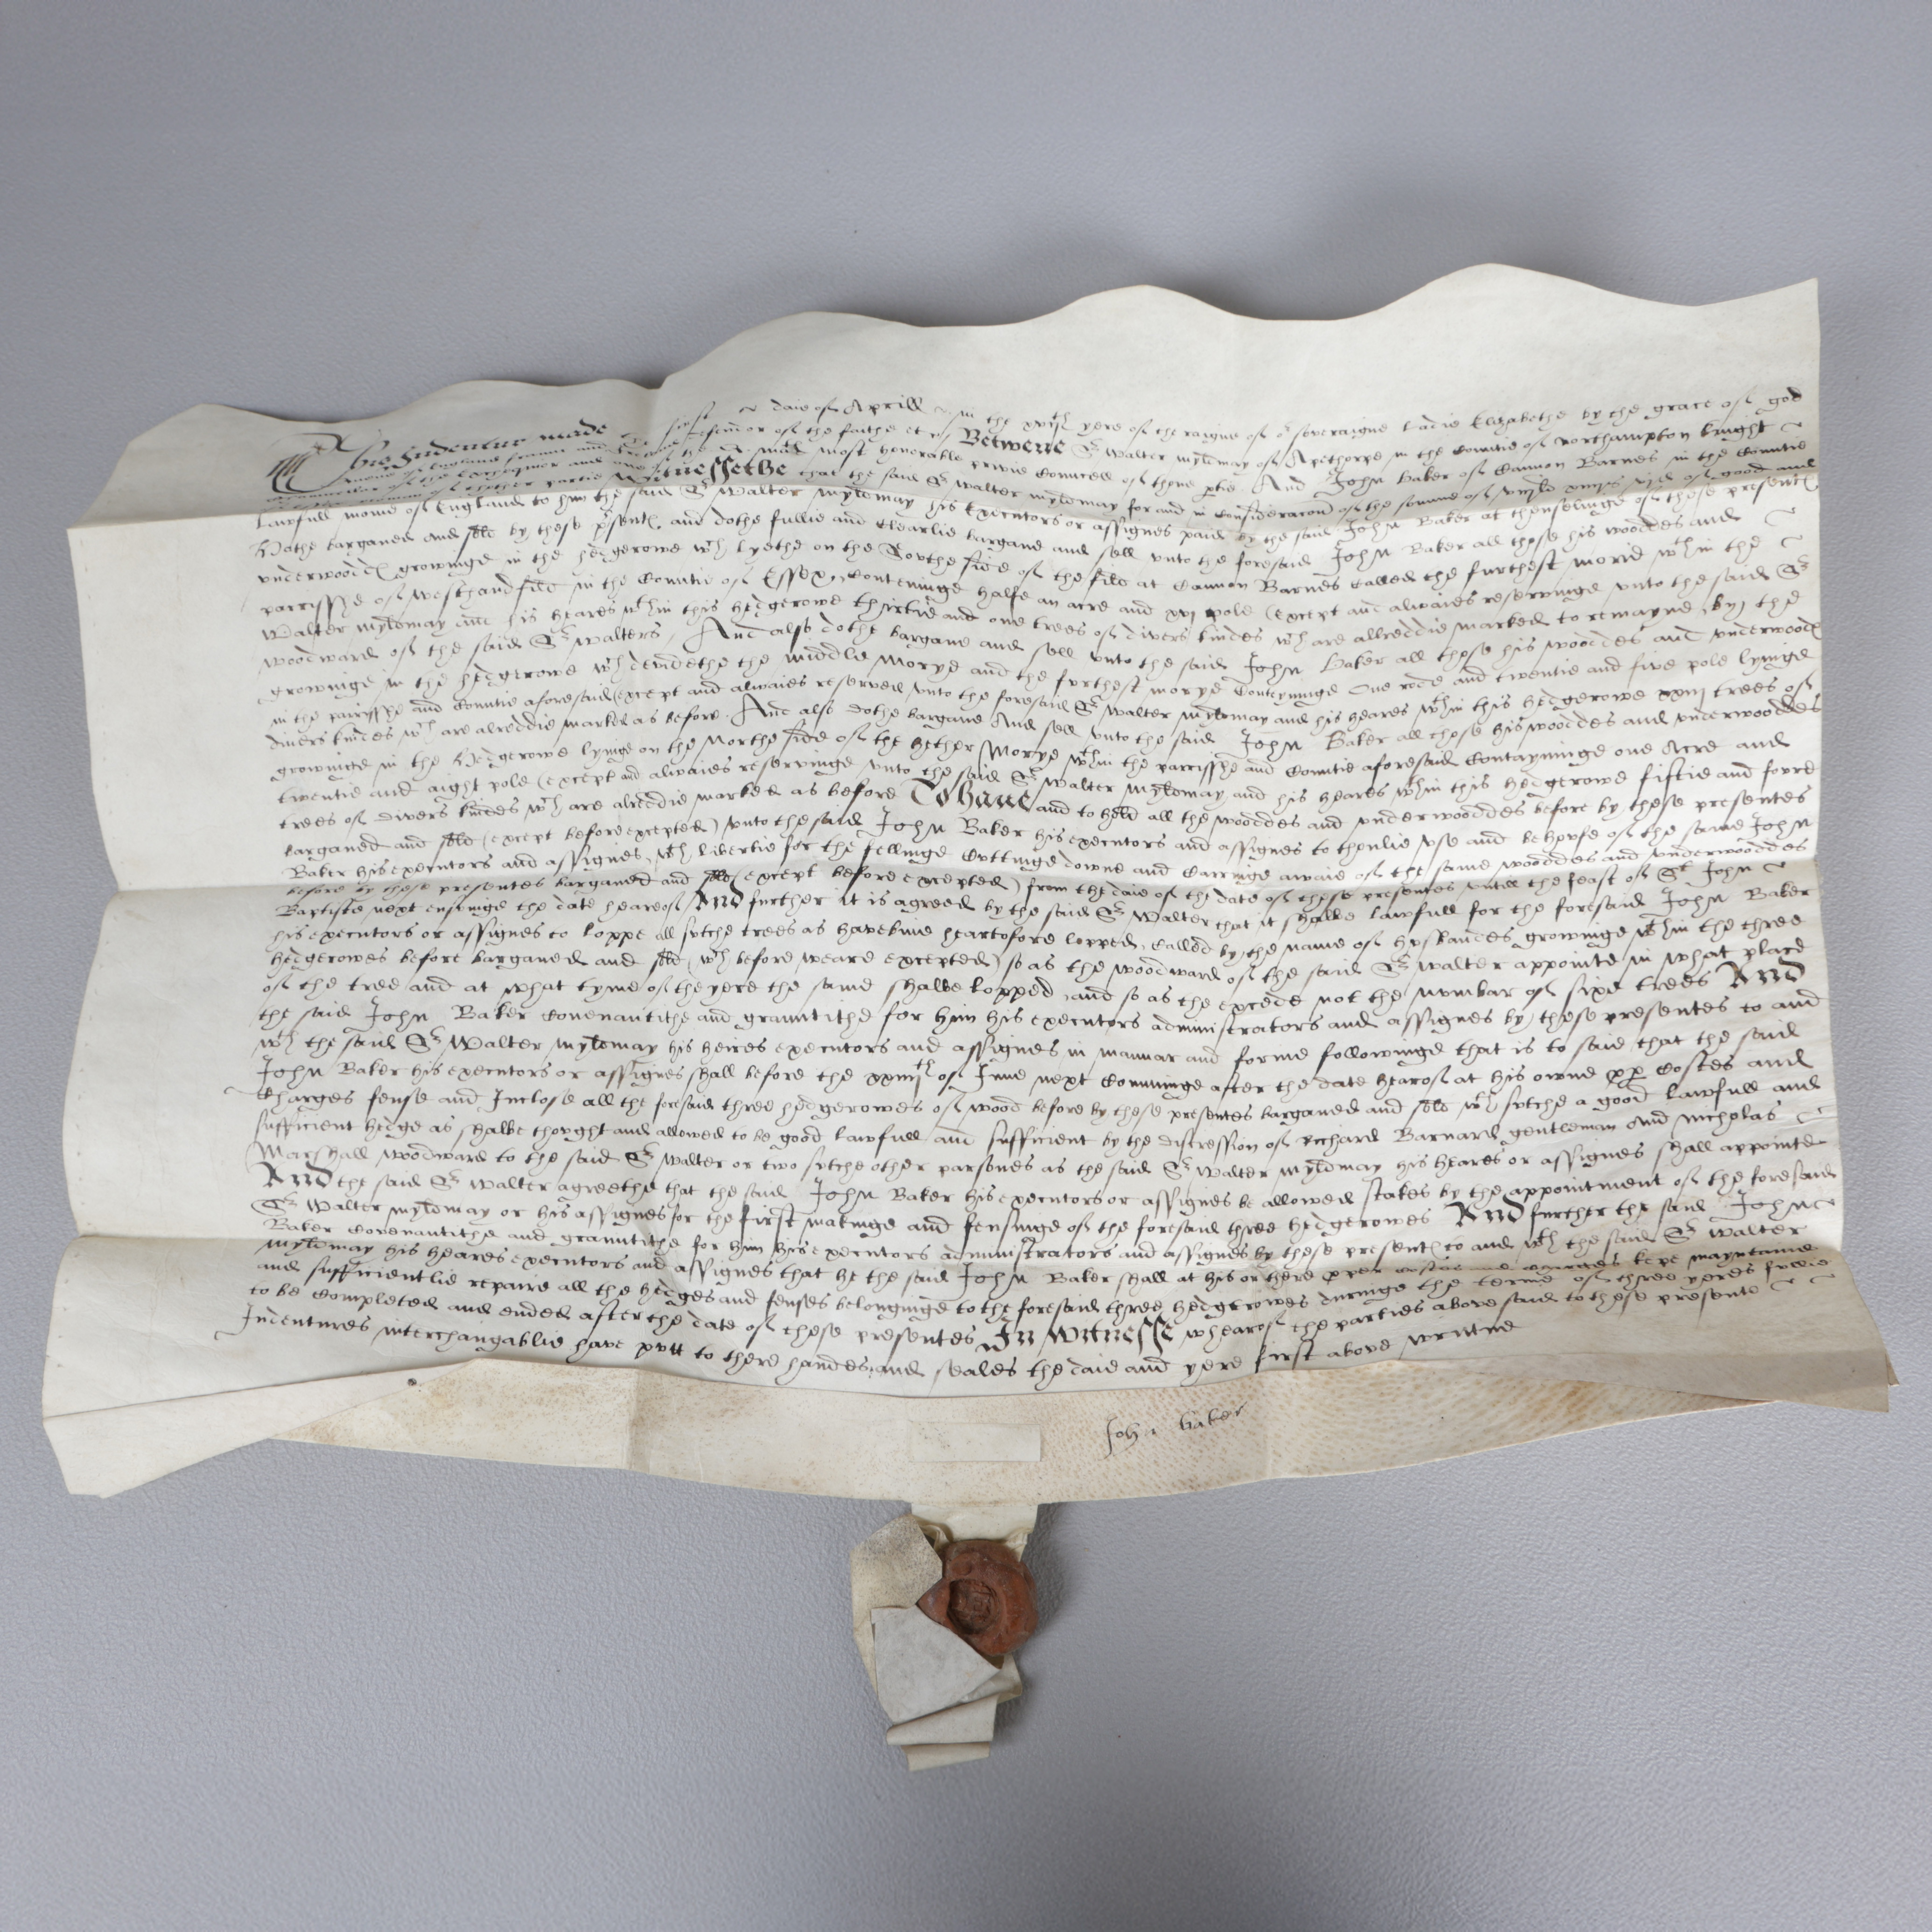 This Indenture made The first daie of Aprill in the xviijth yere of the raigne of or soveraigne Ladie Elizabethe by the grace of god
Quene of England fraunce and Ireland defendor of the faithe etc Betwene Sr Walter myldmay of Apethorpe in the Countie of Northampton knight
Chauncellor of the Exchequor and one of the Q matis most honorable privie Councell of thone ptie And John Baker of Cannon Barnes in the Countie
of thother partie Witnessethe that the said Sr Walter myldmay for and in consideracon of the somme of of good and
Lawfull monie of England to him the said Sr Walter myldmay his Executors or assignes paid by the said John Baker at thensealinge of these presents
Hathe barganed and sold by these psents and dothe fullie and Clearlie bargane and sell unto the foresaid John Baker all those his wooddes and
underwoodds growinge in the hedgerowe wch lyethe on the Southe side of the fild at Cannon Barnes Called the furthest morie wthin the
parrisshe of westhandfild in the Countie of Essex, Conteninge halfe an acre and xvj pole (except and alwaies reservinge unto the said Sr
Walter myldmay and his heares wthin this hedgerowe thirtie and one trees of divers kindes wch are allreddie marked to remayne by the
woodward of the said Sr Walters, And also dothe bargane and sell unto the said John Baker all those his wooddes and underwoods
growinge in the hedgerowe wch devidethe the middle Morye and the furthest morye Conteyninge One rode and twentie and five pole lyinge
in the parrysshe and Countie aforesaid (except and alwaies reserved unto the foresaid Sr Walter myldmay and his heares wthin this hedgerowe xxiij trees of
divers kindes wch are alreddie marked as before. And also dothe bargane And sell unto the said John Baker all those his wooddes and underwooddes
growinge in the Hedgerowe lyinge on the Northe side of the hether Morye wthin the parrisshe and Countie aforesaid Contayninge one Acre and
twentie and aight pole (except and alwaies reservinge unto the said Sr Walter myldmay and his heares wthin this hedgerowe fiftie and foure
trees of divers kindes wch are alreddie marked as before To have and to hold all the wooddes and underwooddes before by these presentes
barganed and sold (except before excepted) unto the said John Baker his executors and assignes to thonlie use and behoufe of the same John
Baker his executors and assignes, wth libertie for the fellinge Cuttinge downe and Carringe awaie of the same wooddes and underwooddes
before by these presentes barganed and sold (except before excepted) from the daie of the date of these presentes untill the feast of St John
Baptiste next ensuinge the date heareof And further it is agreed by the said Sr Walter that it shalbe lawfull for the foresaid John Baker
his executors or assignes to loppe all sutche trees as have bine heartofore lopped, Called by the name of husbandes growinge wthin the three
hedgerowes before barganed and sold (wch before weare excepted) so as the woodward of the said Sr Walter appointe in what place
of the tree and at what tyme of the yere the same shalbe lopped, and so as the excede not the nombar of sixe trees And
the said John Baker Covenautithe and grauntithe for him his executors administrators and assignes by these presentes to and
wth the said Sr Walter myldmay his heires executors and assignes in mannar and forme followinge that is to saie that the said
John Baker his executors or assignes shall before the xxiiijth of June next Comminge after the date hearof at his owne pp Costes and
Charges fense and Inclose all the foresaid three hedgerowes of wood before by these presentes barganed and sold wth sutche a good lawfull and
sufficient hedge as shalbe thought and allowed to be good lawfull and sufficient by the discression of Richard Barnard gentleman And Nicholas
Marshall woodward to the said Sr Walter or two sutche other parsones as the said Sr Walter myldmay his heares or assignes shall appointe
And the said Sr Walter agreethe that the said John Baker his executors or assignes be allowed stakes by the appointment of the foresaid
Sr Walter myldmay or his assignes for the first makinge and fensinge of the foresaid three hedgerowes And further the said John
Baker Covenautithe and grauntithe for him his executors administrators and assignes by these presents to and wth the said Sr Walter
myldmay his heares executors and assignes that he the said John Baker shall at his or there pper costes and charges kepe mayntaine
and sufficientlie repaire all the hedges and fenses belonginge to the foresaid three hedgerowes duringe the terme of three yeres fullie
to be Completed and ended after the date of these presentes In Witnesse whearof the parties above said to these presente
Indentures interchangablie have putt to there handes and seales the daie and yere first above writtne
John baker